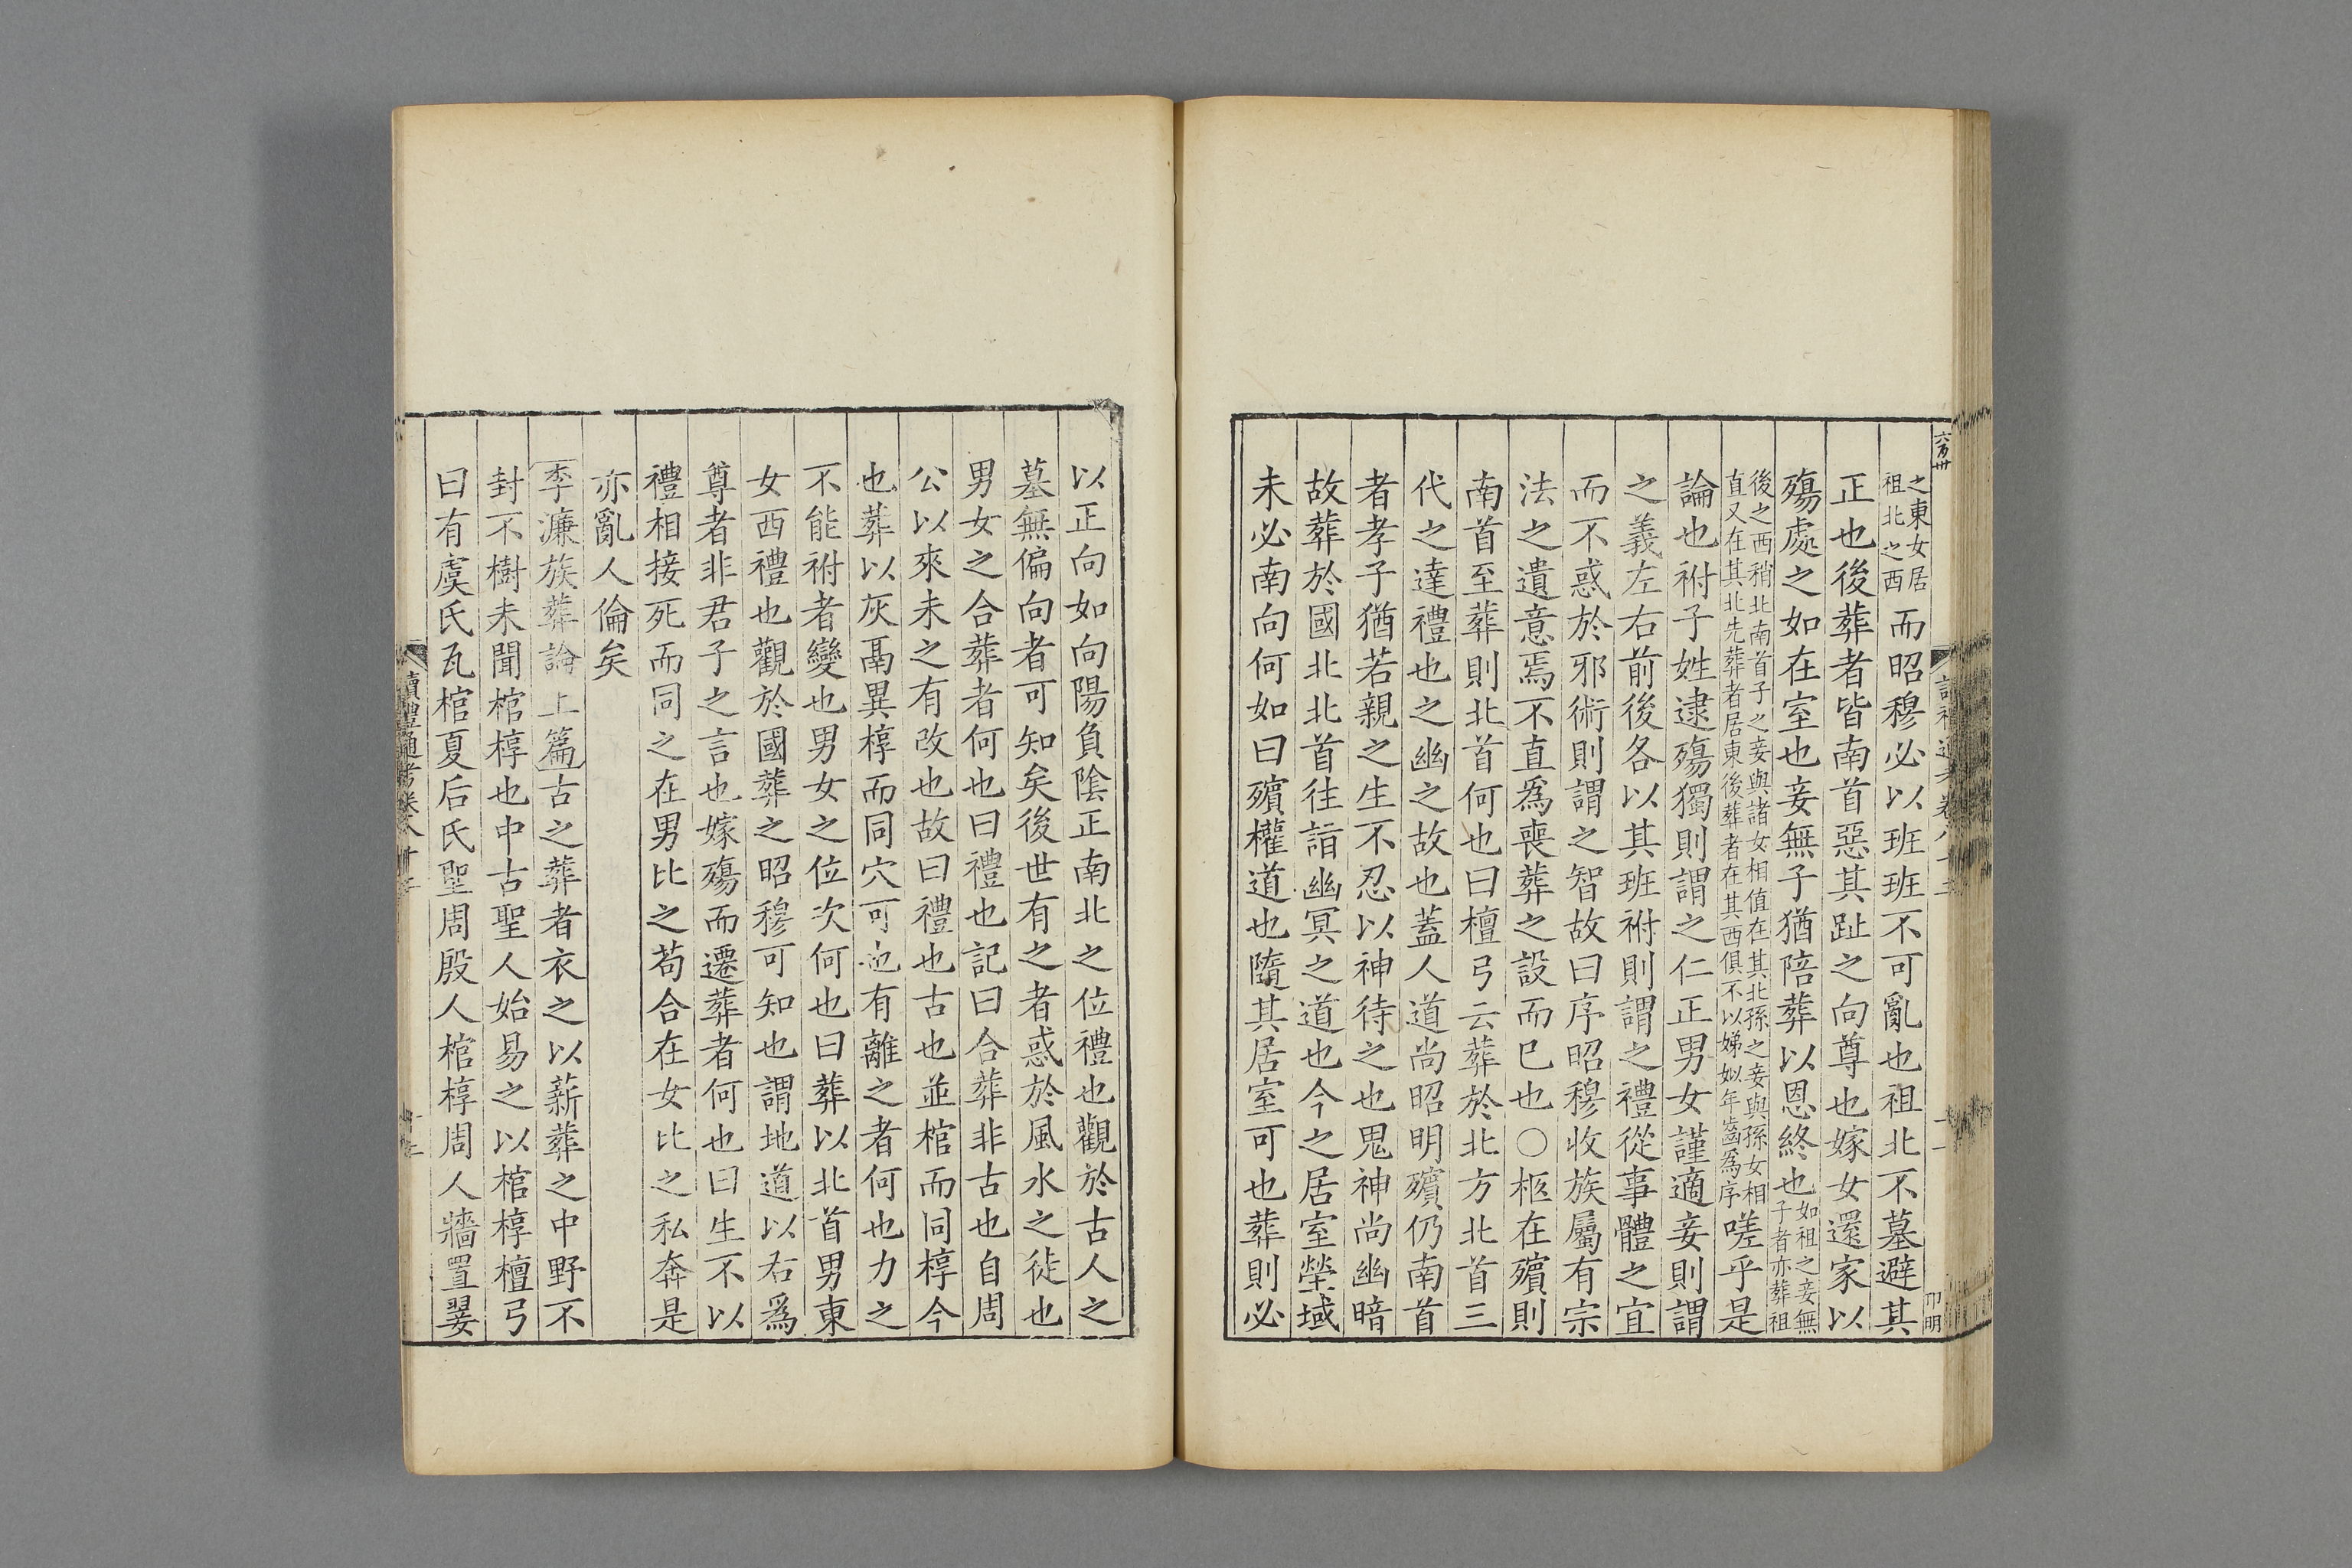 之東女居祖北之西而昭穆必以班班不可亂也祖北不墓避其
正也後葬者皆南首惡其趾之向尊也嫁女還家以
殤處之如在室也妾無子猶陪葬以恩終也如祖之妾無子者亦葬祖
後之西稍北南首子之妾與諸女相值在其北孫之妾與孫女相直又在其北先葬者居東後葬者在其西俱不以娣姒年齒為序嗟乎是
論也祔子姓逮殤獨則謂之仁正男女謹適妾則謂
之義左右前後各以其班祔則謂之禮從事體之宜
而不惑於邪術則謂之智故曰序昭穆收族屬有宗
法之遺意焉不直為喪葬之設而已也○柩在殯則
南首至葬則北首何也曰檀弓云葬於北方北首三
代之達禮也之幽之故也蓋人道尚昭明殯仍南首
者孝子猶若親之生不忍以神待之也鬼神尚幽暗
故葬於國北北首往詣幽冥之道也今之居室塋域
未必南向何如曰殯權道也隨其居室可也葬則必
以正向如向陽負陰正南北之位禮也觀於古人之
墓無偏向者可知矣後世有之者惑於風水之徒也
男女之合葬者何也曰禮也記曰合葬非古也自周
公以來未之有改也故曰禮也古也並棺而同椁今
也葬以灰鬲異椁而同穴可也有離之者何也力之
不能祔者變也男女之位次何也曰葬以北首男東
女西禮也觀於國葬之昭穆可知也謂地道以右爲
尊者非君子之言也嫁殤而遷葬者何也曰生不以
禮相接死而同之在男比之苟合在女比之私奔是
亦亂人倫矣
李濂族葬論上篇古之葬者衣之以薪葬之中野不
封不樹未聞棺椁也中古聖人始易之以棺椁檀弓
曰有虞氏瓦棺夏后氏聖周殷人棺椁周人牆置翣
讀禮通考卷八十三